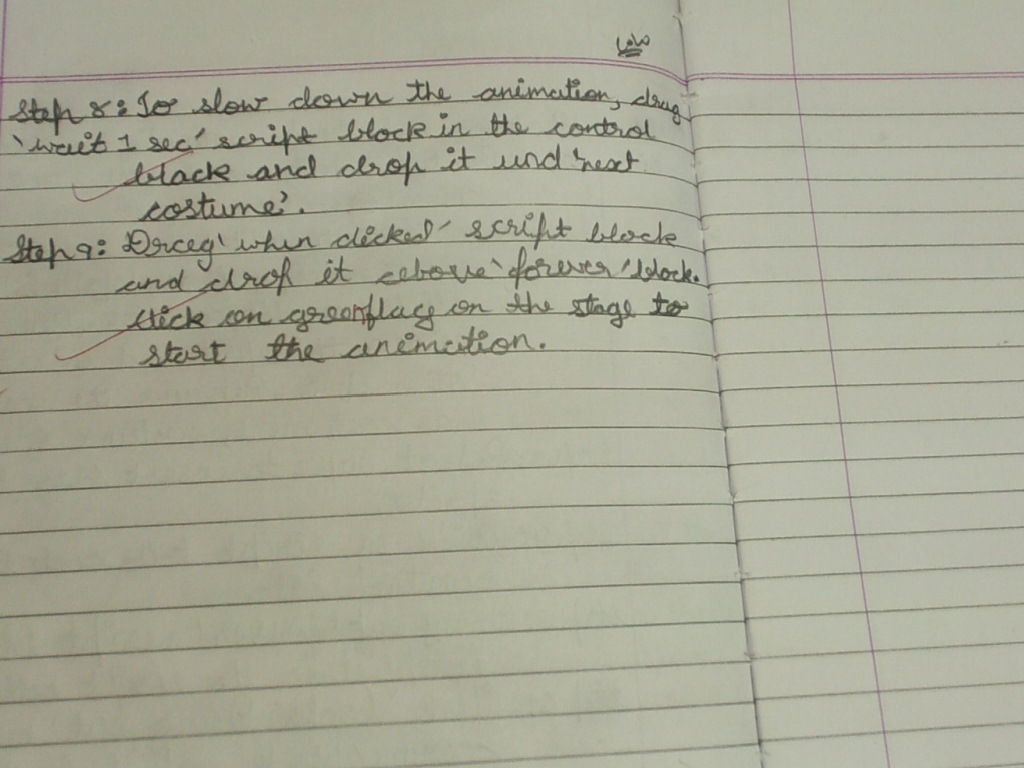 Step 8: To slow down the animation, drag
'wait 1 sec' script block in the control
black and drop it und 'next
costume'.
Step 9: Drag 'when clicked' script block
and drop it above 'forever' block.
click on green flag on the stage to
start the animation.